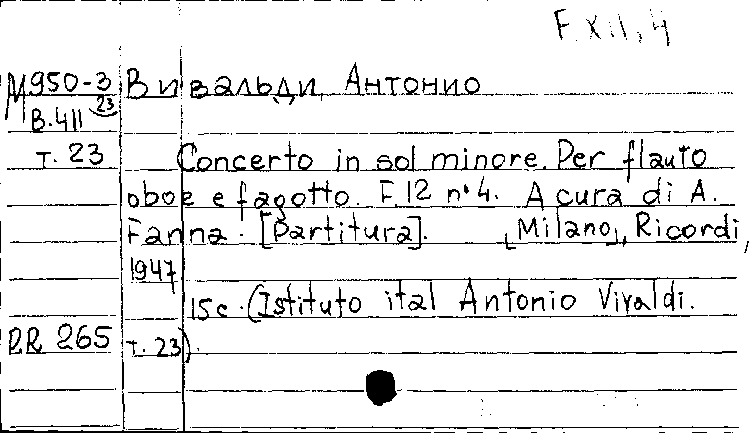 F. XII, 4
М950-3 Вивальди, Антонио
В.411 23
т. 23 Concerto in sol minore. Per flauto
oboe e fagotto. F.12 n°4. A cura di A.
Fanna. [Partitura]. [Milano], Ricordi,
1947
15c. (Istituto ital Antonio Vivaldi.
RR 265 т. 23).